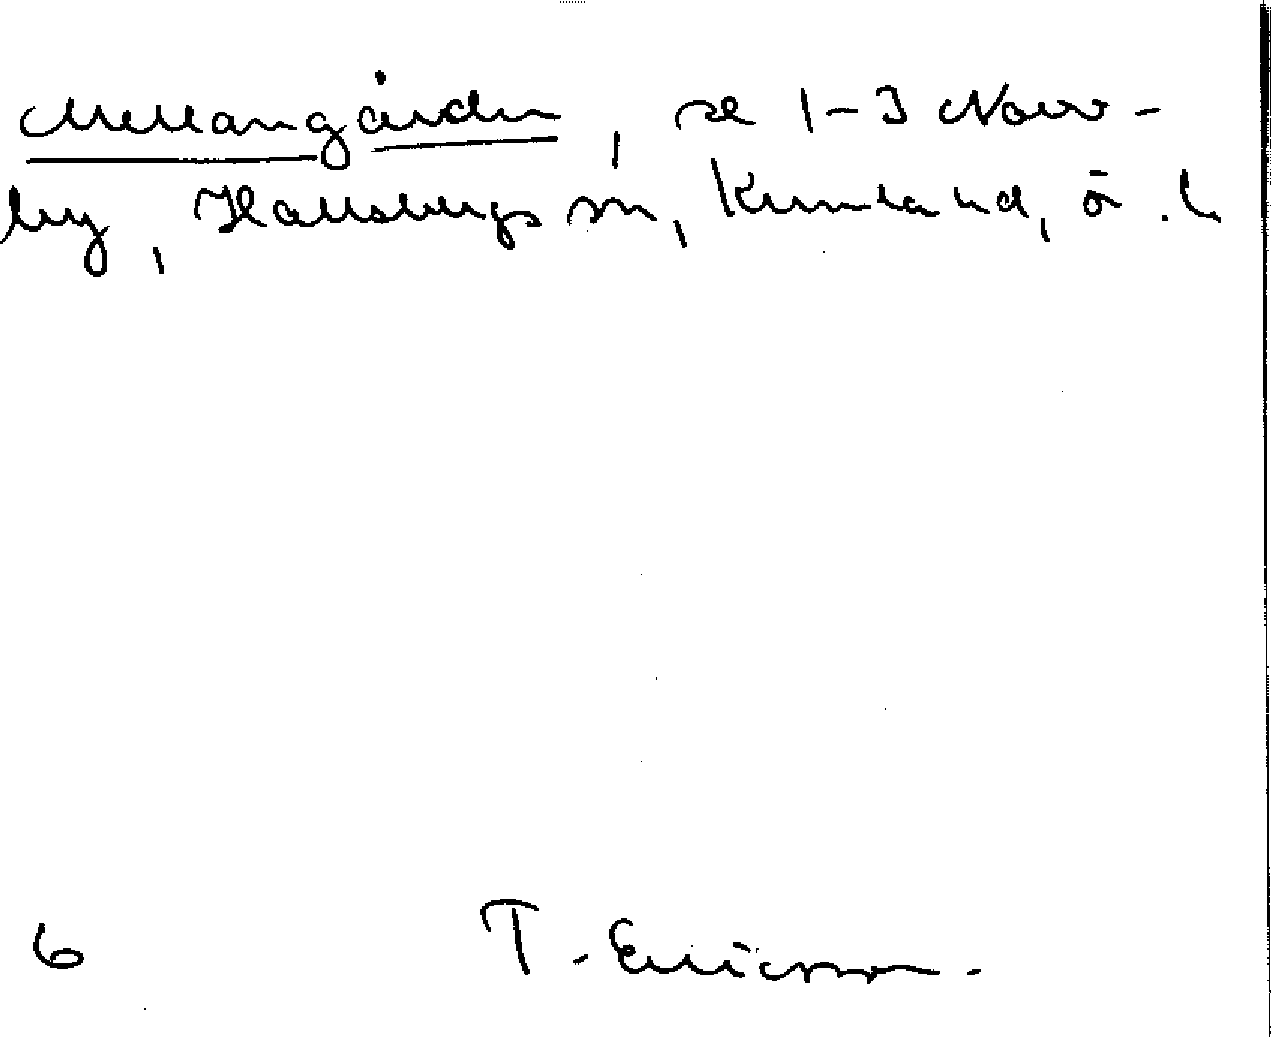 Mellangården, se 1-3 Norr-
by, Hallsbergs sn, Kumla hd, ö. l.
6 T. Ericsson.